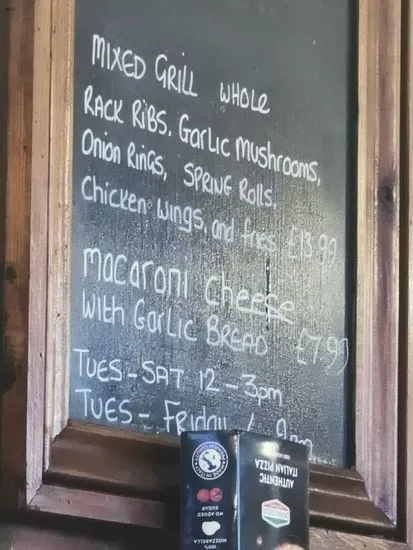 MIXED GRILL WHOLE
RACK RIBS. GARLIC MUSHROOMS,
ONION RINGS, SPRING ROLLS,
CHICKEN WINGS, and fries £13.99
macaroni cheese
with GARLIC BREAD £7.99
TUES-SAT 12-3pm
TUES- Friday 9pm
AUTHENTIC
ITALIAN PIZZA
NO ADDED
SUGAR
100%
MOZZARELLA